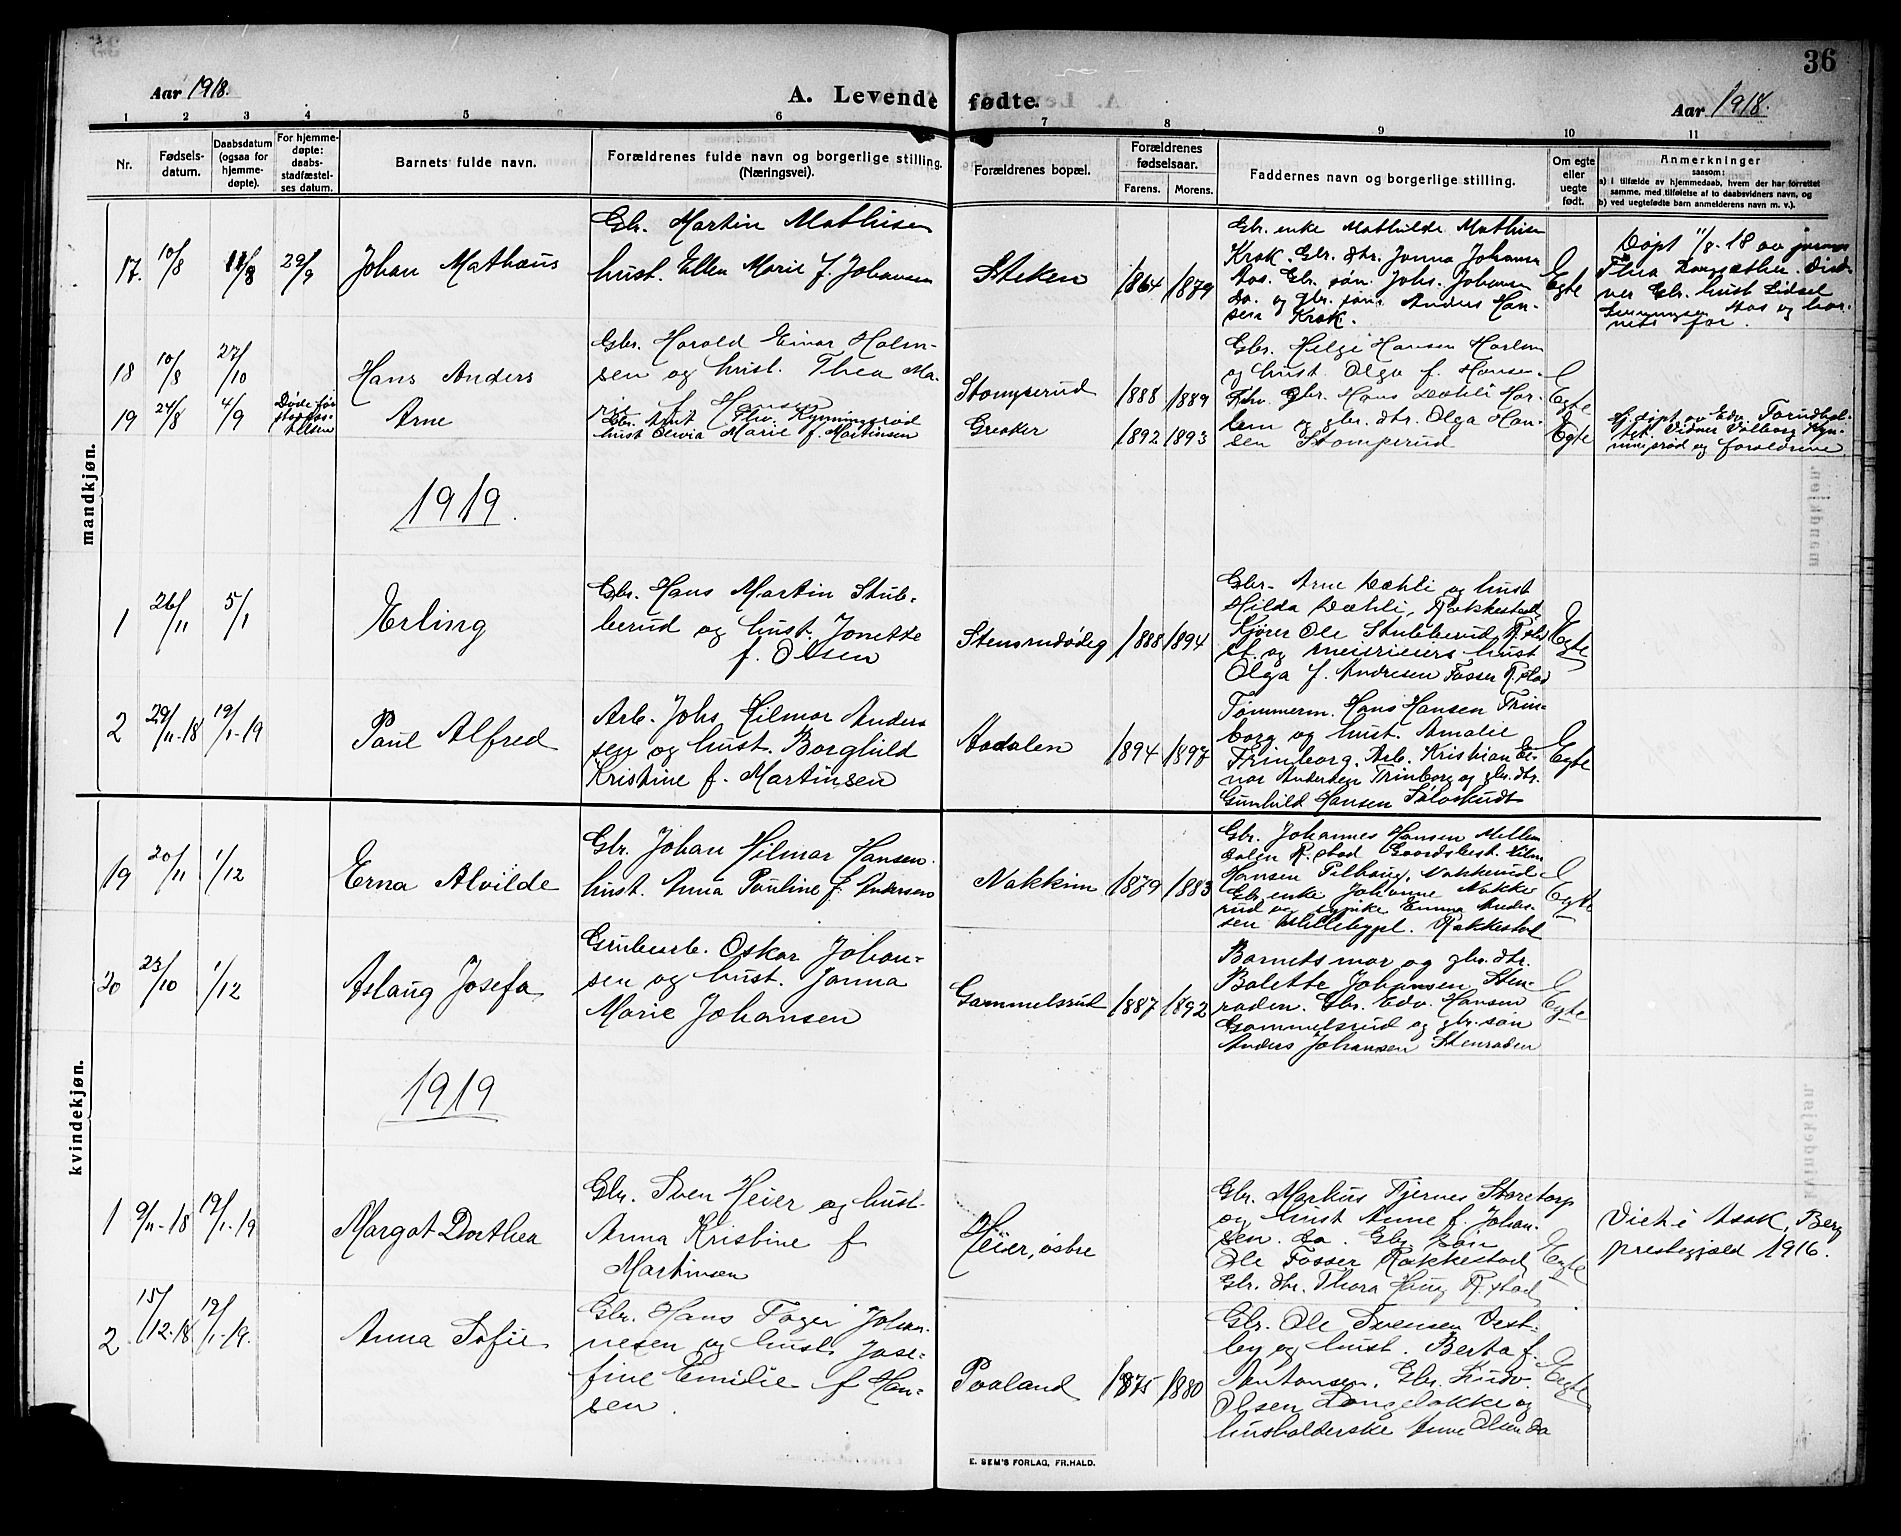 36
Aar 1918.
A. Levende fødte.
Aar 1918.
1 2 3 4 5 6 7 8 9 10 11
Nr.
Fødsels-
datum.
Daabsdatum
(ogsaa for
hjemme-
døpte).
For hjemme-
døpte:
daabs-
stadfæstel-
ses datum.
Barnets fulde navn.
Forældrenes fulde navn og borgerlige stilling.
(Næringsvei).
Forældrenes bopæl.
Forældrenes
fødselsaar.
Farens. Morens.
Faddernes navn og borgerlige stilling.
Om egte
eller
uegte
født.
Anmerkninger
saasom:
a) i tilfælde av hjemmedaab, hvem der har forrettet
samme, med tilføielse af to daabsvidners navn, og
b) ved uegtefødte barn anmelderens navn m. v.).
mandkjøn.
17. 10/8 11/8 29/9
Johan Mathæus
Gbr. Martin Mathisen
hust. Ellen Marie f. Johansen
Steken
1864 1879
Gbr. enke Mathilde Mathisen
Krok. Gbr. dtr. Jonna Johansen
Aas. Gbr. søn. Johs. Johansen
do. og gbr. søn. Anders Han-
sen Krok.
Egte
Døpt 11/8-18 av
Thea
ner Gbr. hust
Aas og bar-
nets far.
18 10/8 27/10
Hans Anders
Gbr. Harald Einar Holm-
sen og hust. Thea Ma-
rie f. Hansen
Stomperud
1888 1889
Gbr. Helge Hansen Harlem
og hust. Olga f. Hansen.
Gbr. Hans Dæhli Har-
lem og gbr. dtr. Olga Han-
sen Stomperud
Egte
19 24/8 4/9
Døde før
Arne
hust Olivia Marie f. Martinsen
Greaker
1892 1893
Egte
Hj. døpt av Edv.
Vidner Valborg Kyn-
ningsrød og forældrene.
1919.
1 26/11 5/1
Erling
Gbr. Hans Martin Stub-
berud og hust. Jonette
f. Olsen
Stensrudødeg
1888 1894
Gbr. Arne Dæhli og hust
Hilda Dæhli, Rakkestad
Kjører Ole Stubberud R.stad
og meieriers hust
Olga f. Andresen Fosser R.stad
Egte
2 29/11-18 19/1-19
Paul Alfred
Arb. Johs. Hilmar Ander-
sen og hust. Borghild
Kristine f. Martinsen
Aadalen
1894 1897
Tømmerm. Hans Hansen Trin-
borg og hust. Amalie
Trinborg. Arb. Kristian Ei-
nar Andersen Trinborg og gbr. dtr.
Gunhild Hansen Sølvskudt
Egte
kvindekjøn.
19 20/11 1/12
Erna Alvilde
Gbr. Johan Hilmar Hansen
hust. Anna Pauline f. Andersen
Nakkim
1879 1883
Gbr. Johannes Hansen Mellem
dalen R.stad Gaardsbest.
Hansen Pilhaug, Nakkerud
Gbr. enke Johanne Nakke
rud og sypike Emma Ander-
sen Rakkestad
Egte
20 23/10 1/12
Aslaug Josefa
Grubearb. Oskar Johan-
sen og hust. Janna
Marie Johansen
Gammelsrud
1887 1892
Barnets mor og gbr. dtr.
Balette Johansen Sten-
raden. Gbr. Edv. Hansen
Gammelsrud og gbr. søn
Anders Johansen Stenraden
Egte
1919
1 9/11-18 19/1-19
Margot Dorthea
Gbr. Sven Heier og hust.
Anna Kristine f
Martinsen
Heier, østre
Gbr. Markus Tjernes Storetorp
og hust Anne f. Johan-
sen. do. Gbr. søn
Ole Fosser Rakkestad
Gbr. dtr. Thora Haug R.stad
Egte
Viet i Asak, Berg
prestegjæld 1916.
2 15/12-18 19/1-19.
Anna Sofie
Gbr. Hans Foger Johan-
nesen og hust. Jose-
fine Emilie f Han-
sen.
Paaland
1875 1880
Gbr. Ole Svensen Vest-
by og hust. Berta f.
Antonsen. Gbr. Ludv.
Olsen Langeløkke og
husholderske Anne Olsen do
Egte
E. SEM'S FORLAG, FR.HALD.